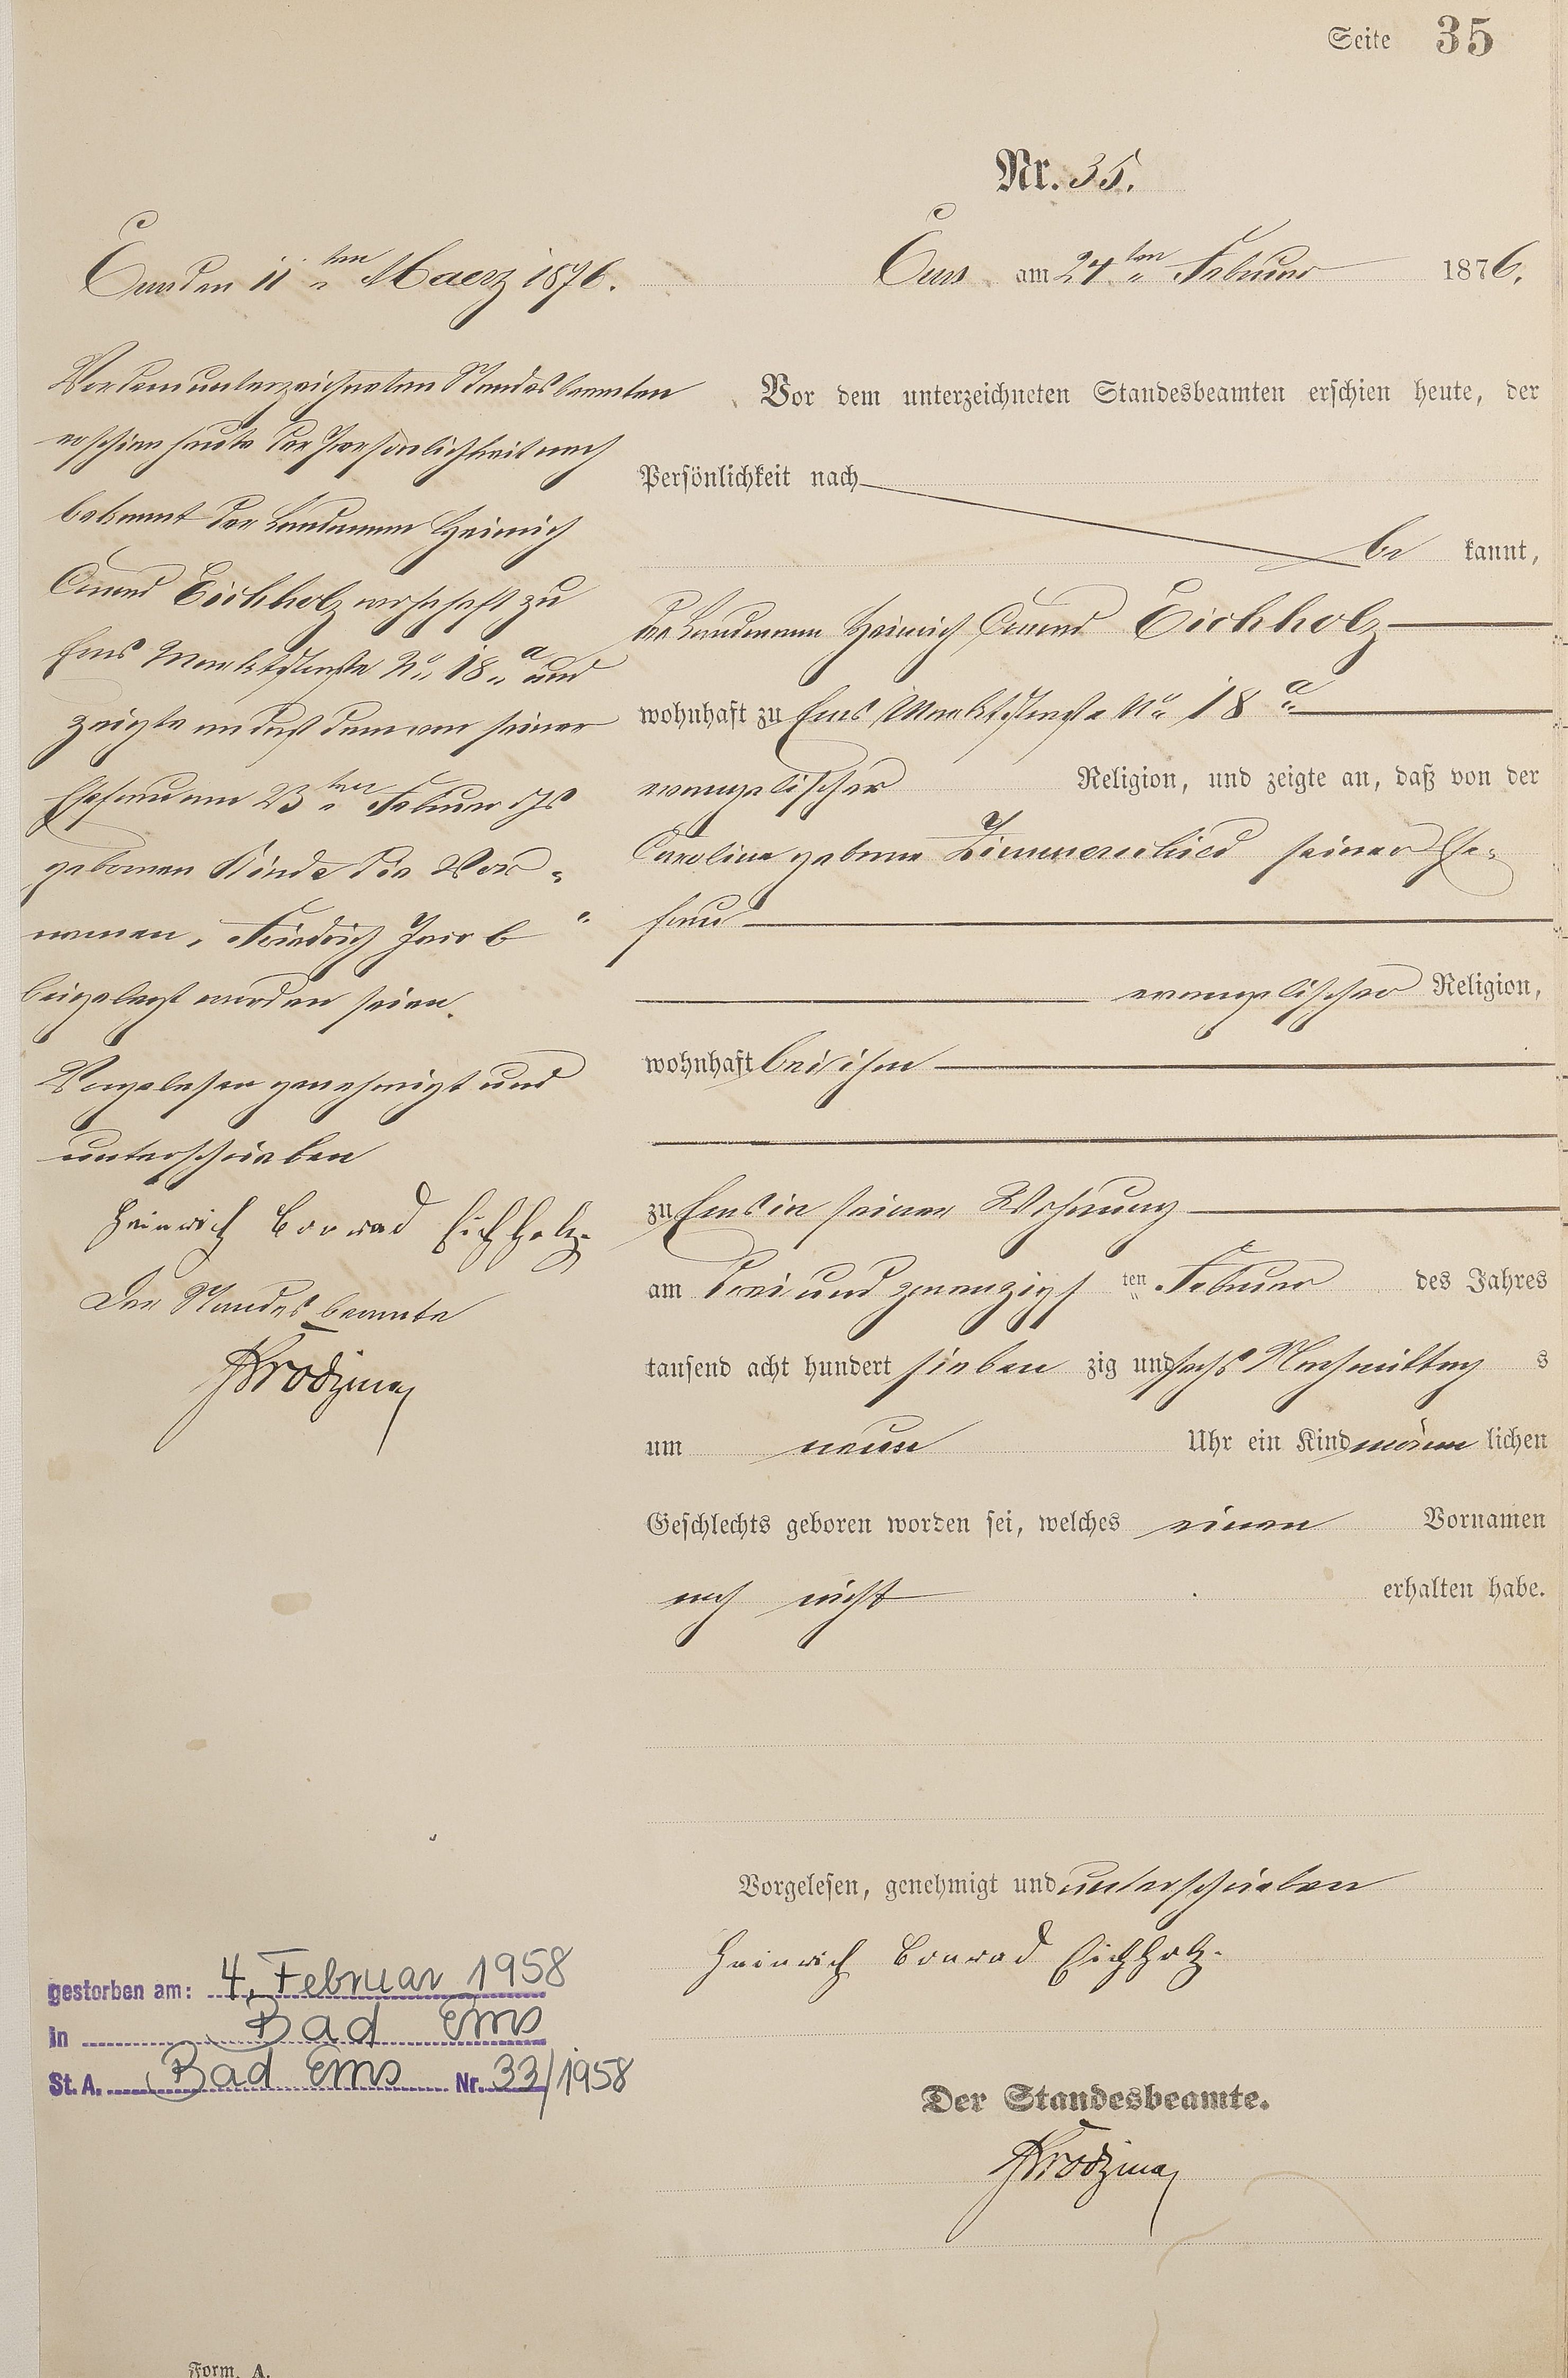 Seite 35
Nr. 35.
Ems am 24ten Februar 1876.
Vor dem unterzeichneten Standesbeamten erschien heute, der
Persönlichkeit nach
be kannt,
der Landmann Heinrich Conrad Eichholz
wohnhaft zu Ems Marktstraße No 18a
evangelischer Religion, und zeigte an, daß von der
Caroline geborene Zimmerschied seiner Ehe-
frau
evangelischer Religion,
wohnhaft bei ihm
zu Ems in seiner Wohnung
am drei und zwanzigsten Februar des Jahres
tausend acht hundert sieben zig und sechs Nachmittag s
um neun Uhr ein Kind männ lichen
Geschlechts geboren worden sei, welches einen Vornamen
noch nicht erhalten habe.
Vorgelesen, genehmigt und unterschrieben
Heinrich Conrad Eichholz.
Der Standesbeamte.
Ems den 11ten Maerz 1876.
Vor dem unterzeichneten Standesbeamten
erschien heute der Persönlichkeit nach
bekannt der Landmann Heinrich
Conrad Eichholz wohnhaft zu
Ems Marktstraße No 18a und
zeigte an daß dem von seiner
Ehefrau am 23ten Februar djs
gebornen Kinde die Vor-
namen, Friedrich Jacob"
beigelegt worden seien.
Vorgelesen genehmigt und
unterschrieben
Heinrich Conrad Eichholz.
Der Standesbeamte
gestorben am: 4. Februar 1958
in Bad Ems
St. A. Bad Ems Nr. 33/1958
Form. A.